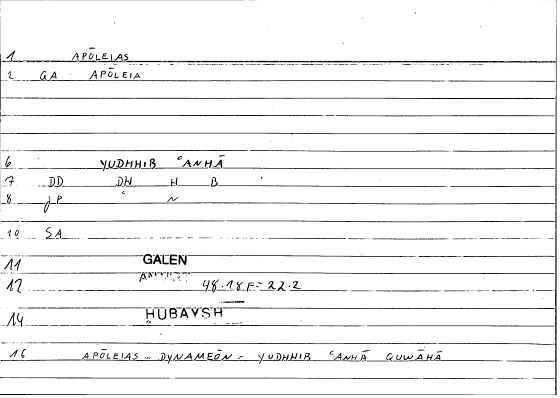 1 APŌLEIAS
2 GA APŌLEIA
6 YUDHHIB ʿANHĀ
7 DD DH H B
8 JP ʿ N
10 SA
11 GALEN
12 48.18F=22.2
14 ḤUBAYSH
16 APŌLEIAS ... DYNAMEŌN = YUDHHIB ʿANHĀ QUWĀHĀ